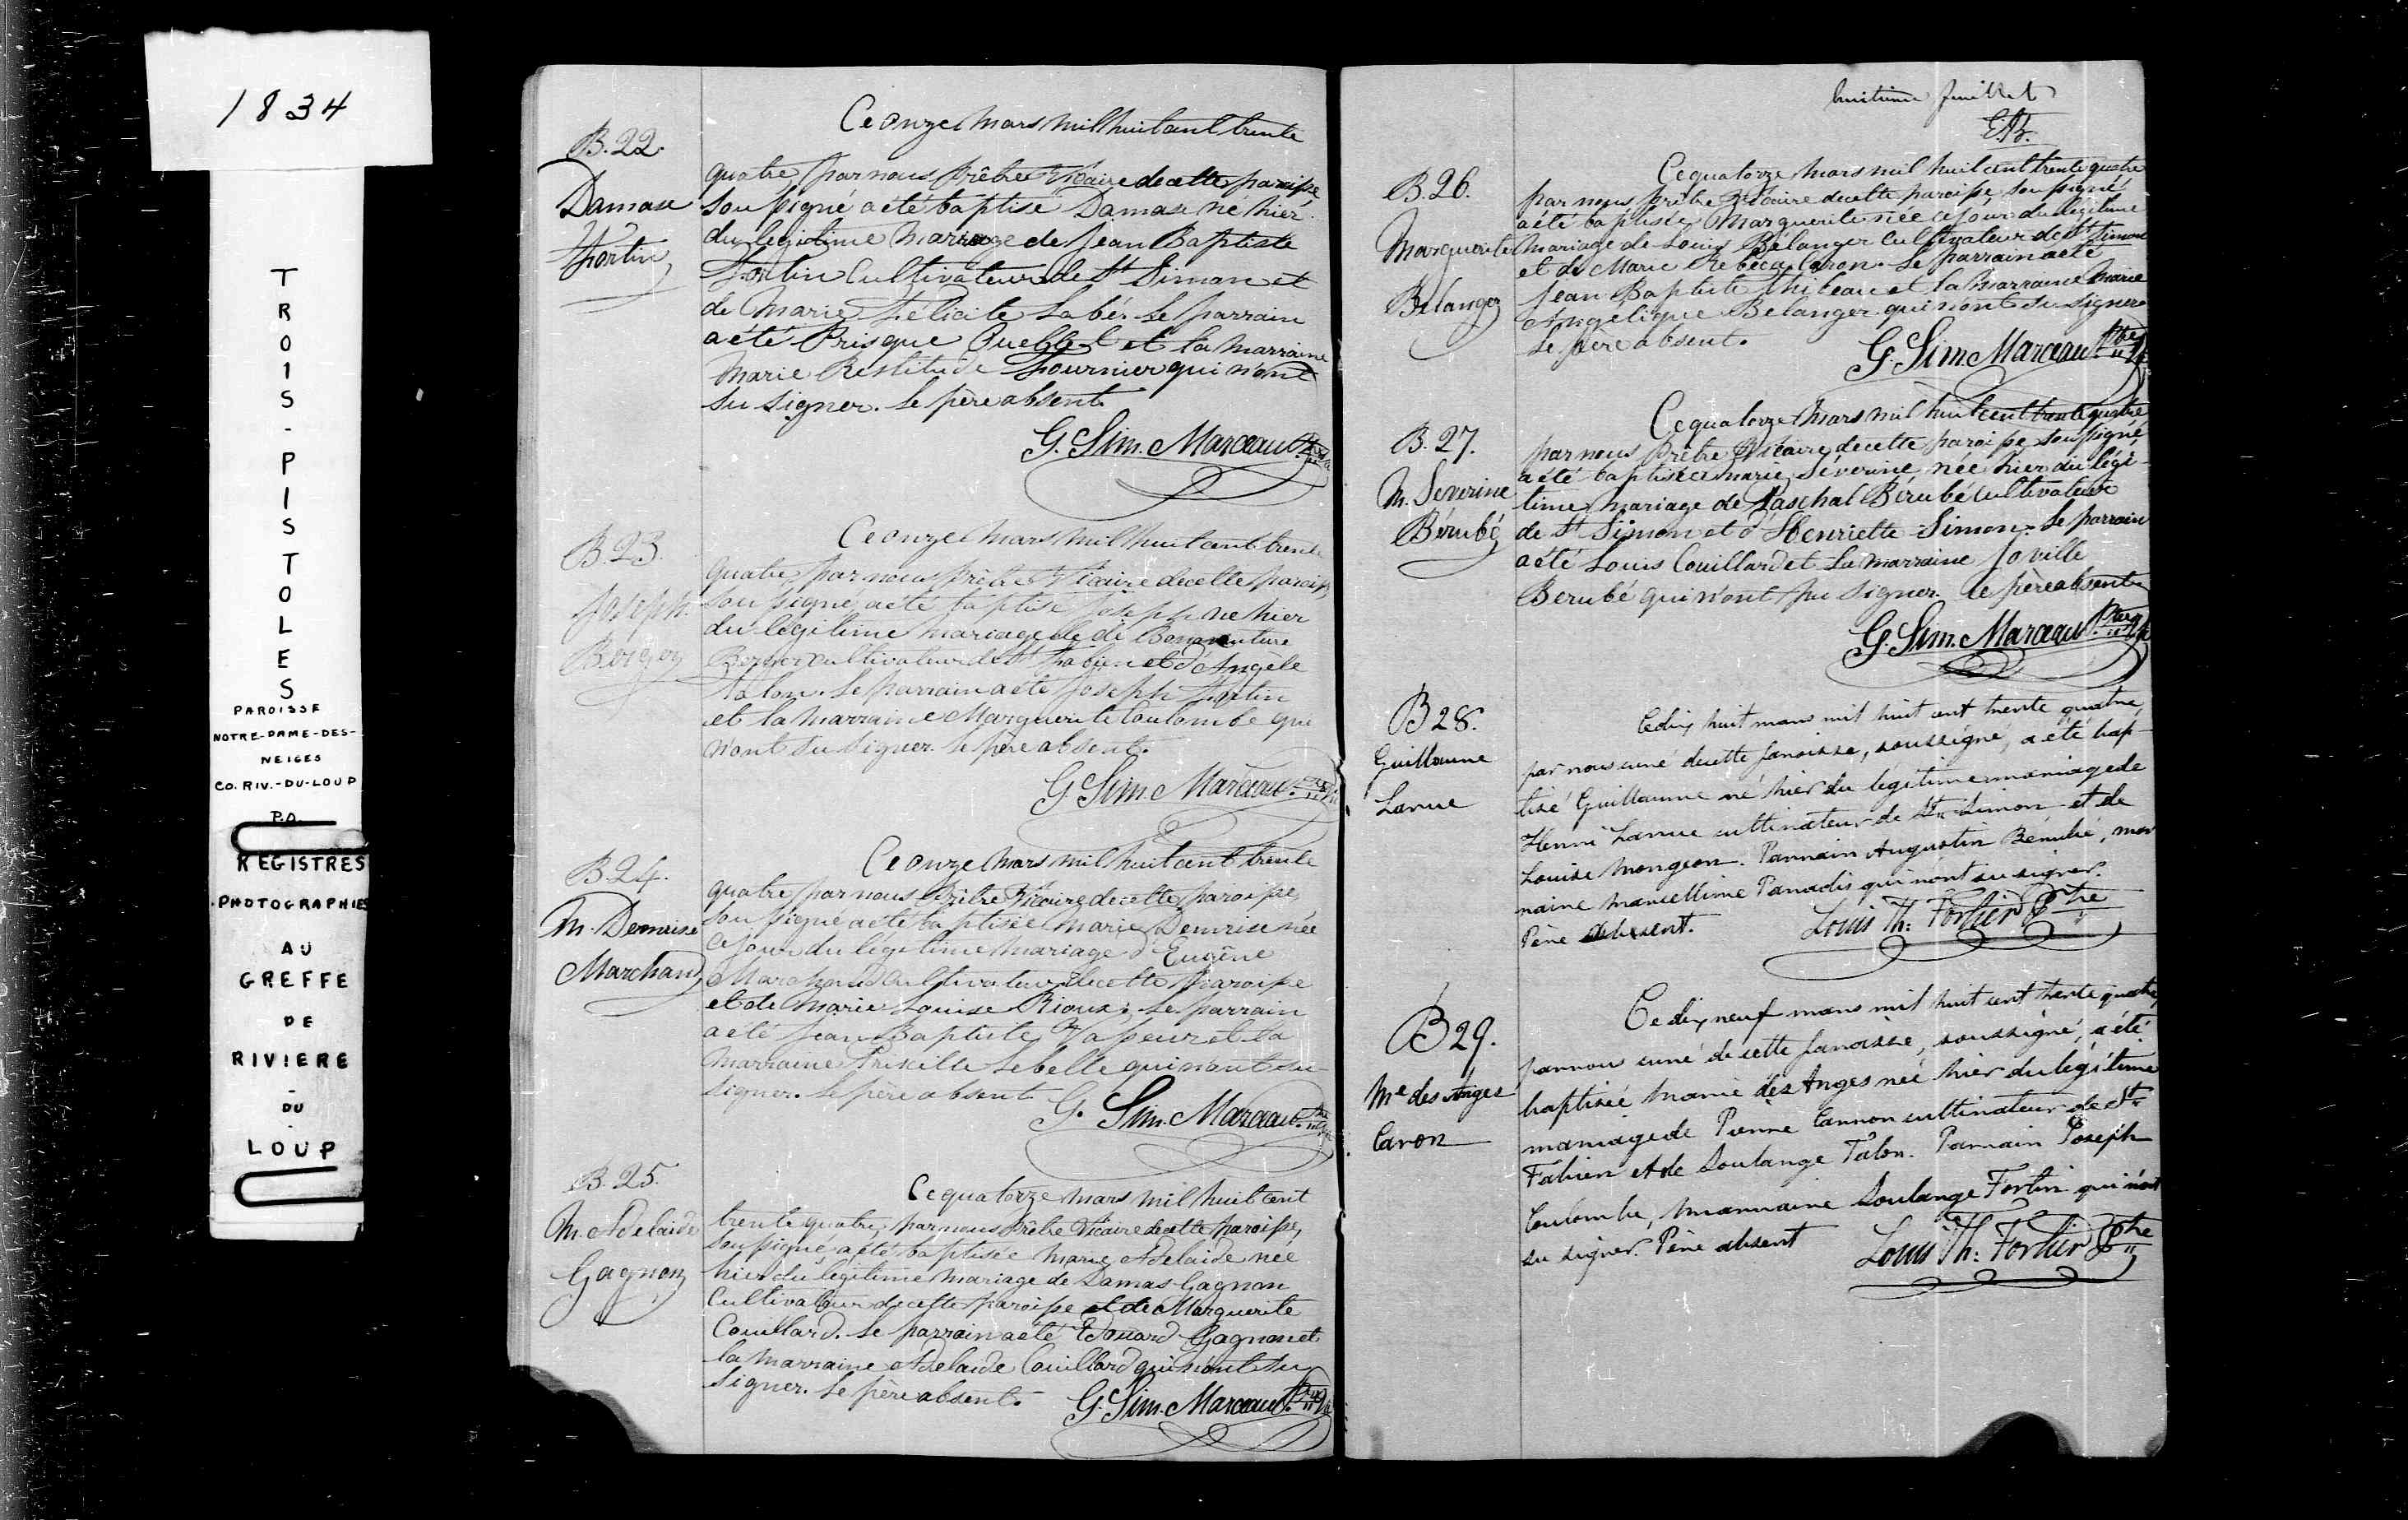 1834
TROIS-PISTOLES
PAROISSE
NOTRE-DAME-DES-
NEIGES
CO. RIV.-DU-LOUP
P.Q.
REGISTRES
PHOTOGRAPHIES
AU
GREFFE
DE
RIVIERE
-
DU
-
LOUP
B. 22.
Damase
Fortin
Ce onze mars mil huit cent trente
quatre, par nous Prêtre Vicaire de cette paroisse
soussigné a été baptisé Damase né hier
du legitime mariage de Jean Baptiste
Fortin Cultivateur de St Simon et
de Marie Félicité Labé. Le parrain
a été Prisque Ouellet et la marraine
Marie Restitude Fournier qui n'ont
su signer. Le père absent.
G. Sim. Marceau Ptre
B. 23.
Joseph
Berger
Ce onze mars mil huit cent trente
quatre, par nous prêtre Vicaire de cette paroisse
soussigné, a été baptisé Joseph né hier
du légitime mariage de Bonaventure
Berger cultivateur de St Fabien et d'Angele
Talon. Le parrain a été Joseph Fortin
et la marraine Marguerite Coulombe qui
n'ont su signer. Le père absent.
G. Sim. Marceau Ptre
B. 24.
M. Demise
Marchand
Ce onze mars mil huit cent trente
quatre par nous Prêtre Vicaire de cette paroisse
soussigné a été baptisée Marie Demise née
ce jour du légitime mariage d'Eugène
Marchand Cultivateur de cette Paroisse
et de Marie Louise Rioux. Le parrain
a été Jean Baptiste Vasseur et la
marraine Priscille Lebelle qui n'ont su
signer. Le père absent
G. Sim. Marceau Ptre
B. 25.
M. Adelaide
Gagnon
Ce quatorze mars mil huit cent
trente quatre, par nous Prêtre Vicaire de cette paroisse,
soussigné, a été baptisée Marie Adelaide née
hier du légitime mariage de Damas Gagnon
Cultivateur de cette paroisse et de Marguerite
Couillard. Le parrain a été Edouard Gagnon et
la marraine Adelaide Couillard qui n'ont su
signer. Le père absent.
G. Sim. Marceau Ptre
huitième feuillet
B. 26.
Marguerite
Bélanger
Ce quatorze mars mil huit cent trente quatre
par nous prêtre Vicaire de cette paroisse, soussigné
a été baptisée Marguerite née ce jour du legitime
mariage de Louis Bélanger Cultivateur de St Simon
et de Marie Rebecca Caron. Le parrain a été
Jean Baptiste Thibeau et la marraine Marie
Angelique Belanger qui n'ont su signer
Le père absent.
G. Sim. Marceau Ptre
B. 27.
M. Severine
Bérubé
Ce quatorze mars mil huit cent trente quatre
par nous prêtre Vicaire de cette paroisse soussigné
a été baptisée Marie Séverine née hier du légi-
time mariage de Paschal Bérubé Cultivateur
de St Simon et d'Henriette Simon. Le parrain
a été Louis Couillard et la marraine Joville
Berubé qui n'ont pu signer. Le père absent
G. Sim. Marceau Ptre
B 28.
Guillaume
Larue
Ce dix huit mars mil huit cent trente quatre
par nous curé de cette paroisse, soussigné, a été bap-
tisé Guillaume né hier du légitime mariage de
Henri Larue cultivateur de St Simon et de
Louise Mongeon. Parrain Augustin Bérubé, mar
raine Marcelline Paradis qui n'ont su signer.
Père absent.
Louis Th: Fortier Ptre
B 29.
Me des Anges
Caron
Ce dix neuf mars mil huit cent trente quatre,
par nous curé de cette paroisse, soussigné, a été
baptisée Marie des Anges née hier du légitime
mariage de Pierre Carron cultivateur de St
Fabien et de Soulange Talon. Parrain Joseph
Coulombe, marraine Soulange Fortin qui n'ont
su signer. Père absent
Louis Th: Fortier Ptre